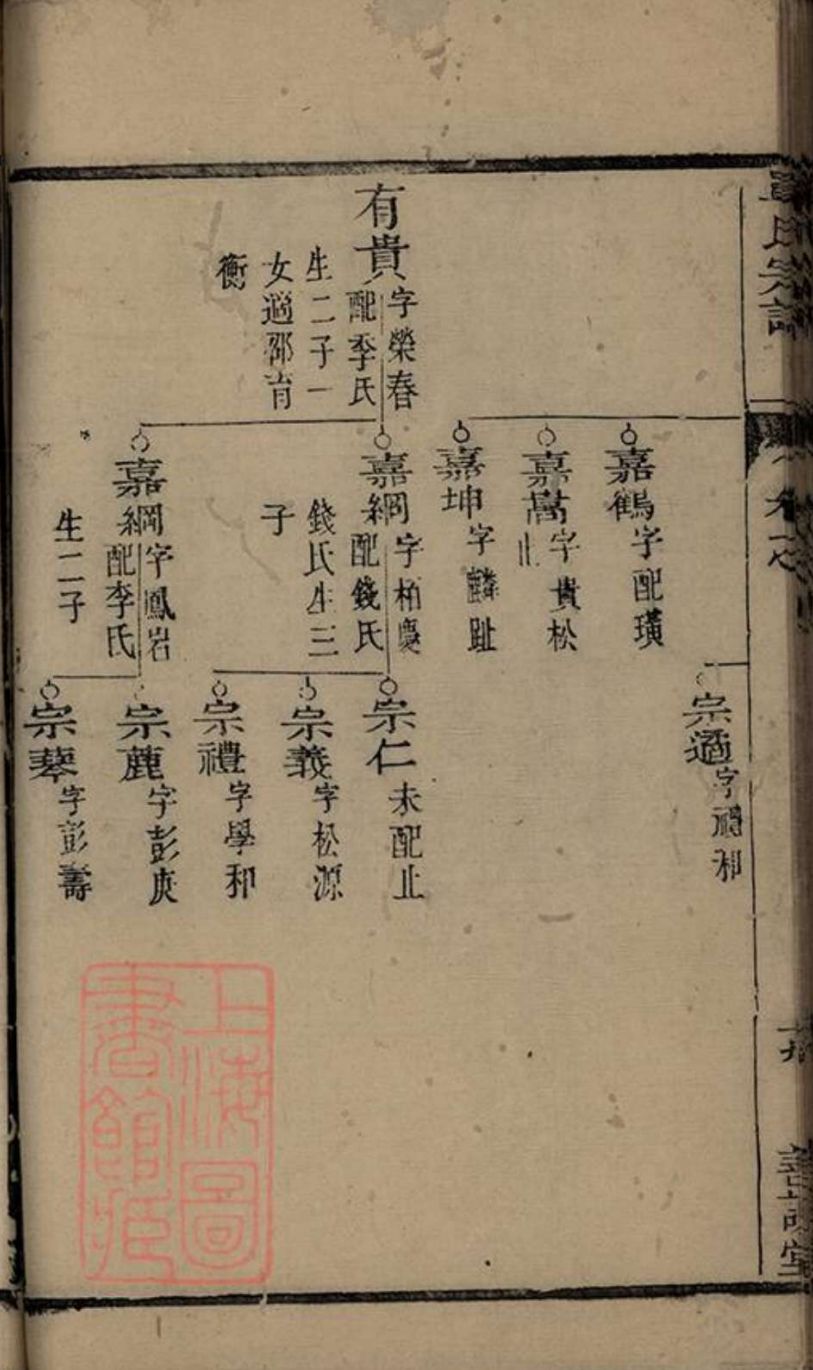 氏宗譜
嘉鶴字配璜
嘉嵩字貴松
止
嘉坤字麟趾
宗適字 和
有貴字榮春
配季氏
生二子一
女適邵育
衡
嘉綱字柏慶
配錢氏
錢氏生三
子
宗仁未配止
宗義字松源
宗禮字學和
嘉綗字鳳岩
配李氏
生二子
宗麓字彭庚
宗琴字彭壽
上海圖
書館藏